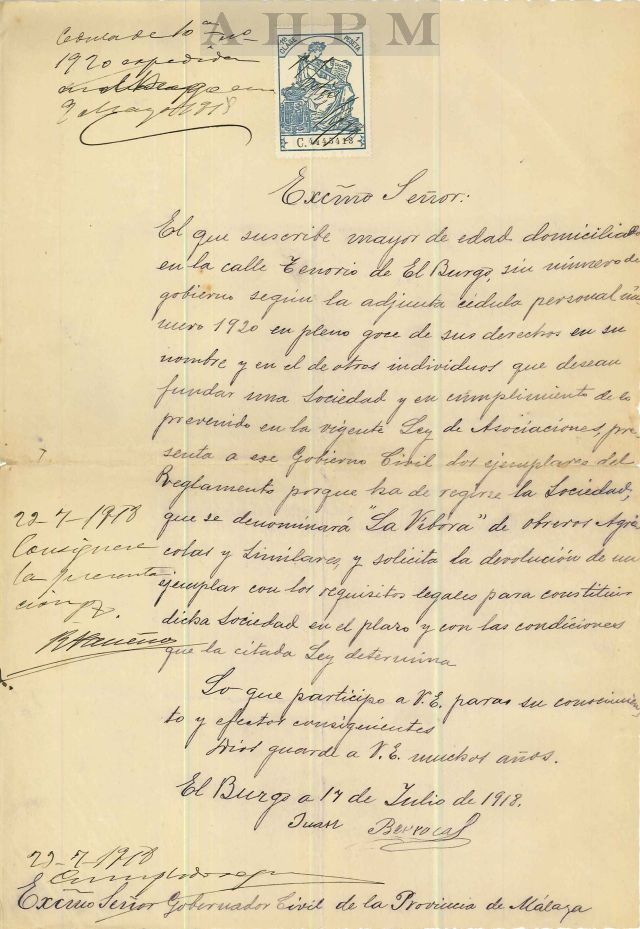 A H P M
Cedula de 10ª
1920 expedida
en el Burgo en
9 Mayo 1918
11ª CLASE 1 PESETA
C.4445413
Excm̃o Señor:
El que suscribe mayor de edad domiciliado
en la calle Tenorio de El Burgo, sin número de
gobierno según la adjunta cédula personal nú
mero 1920 en pleno goce de sus derechos en su
nombre y en el de otros individuos que desean
fundar una Sociedad y en cumplimiento de lo
prevenido en la vigente Ley de Asociaciones, pre
senta a ese Gobierno Civil dos ejemplares del
Reglamento porque ha de regirse la Sociedad,
que se denominará "La Vibora" de obreros Agrí
colas y Similares, y solicita la devolución de un
ejemplar con los requisitos legales para constituir
dicha Sociedad en el plazo y con las condiciones
que la citada Ley determina
22-7-1918
Consignese
la presenta
cion
Lo que participo a V.E. para su conocimien
to y efectos consiguientes
Dios guarde a V.E. muchos años.
El Burgo a 17 de Julio de 1918.
Juan Berrocal
22-7-1918
Excm̃o Señor Gobernador Civil de la Provincia de Málaga